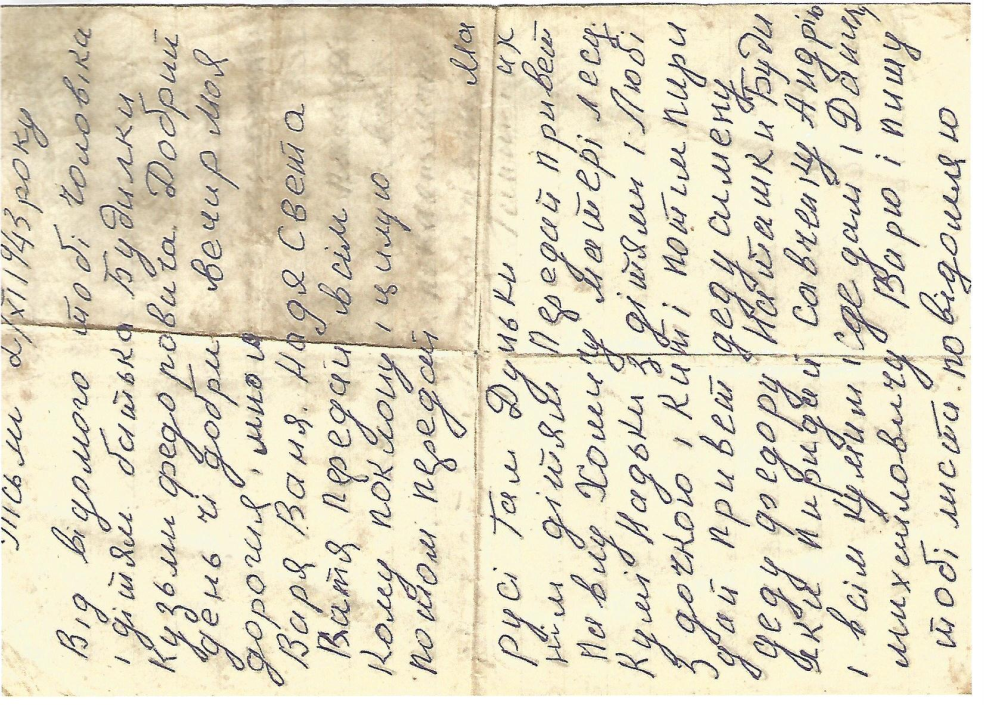 2/XI 1943 року
Від відомого тобі чоловіка
і дітям батька Будилки
Кузьми федоровича Добрий
день чі добри вечир моя
дорогия
Варя Ваня. Надя Света
Ватя передай всім
Кому поклону і цилую
потом передай Ма
русі Там Дуньки их
ним дітям Передай привет
Павлу Хоми Матері леся
Кумі Надьки З дітями і Любі
З дочкою і потім пири
дай привет деду симену
деду федору Наташки Буди
пиридай савченку Андрію
і всім кумам і Данилу
михийловичу Варю і пишу
тобі листа. повідомляю